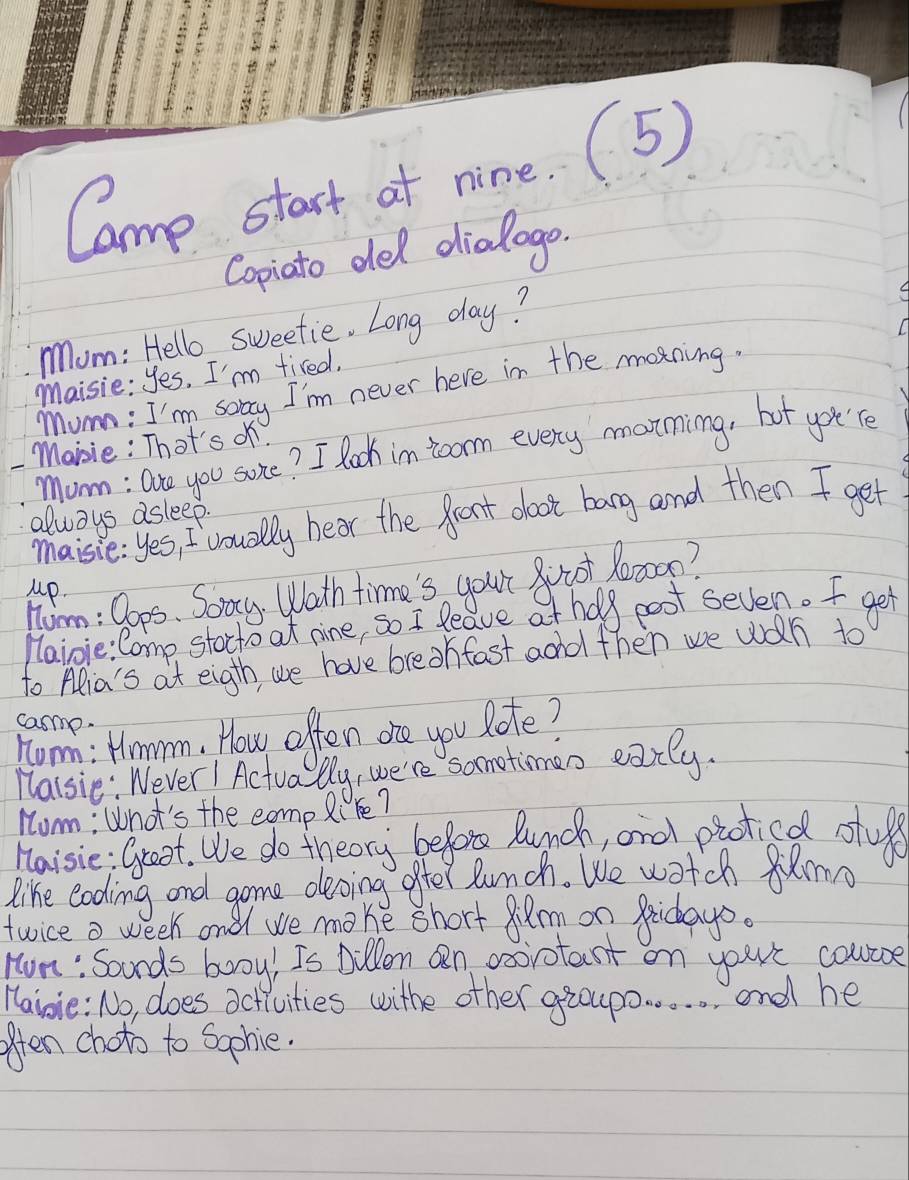 Camp start at nine. (5)
Copiato del dialogo.
Mum: Hello sweetie. Long day?
Maisie: Yes. I'm tired.
Mum: I'm sorry I'm never here in the morning.
- Maisie: That's ok.
Mum: Are you sure? I look in room every morning, but you're
always asleep.
Maisie: Yes, I usually hear the front door bang and then I get
up.
Mum: Oops. Sorry. Wath time's your first lesson?
Maisie: Camp starts at nine, so I leave at half past seven. I get
to Alia's at eigth, we have breakfast and then we walk to
camp.
Mum: Hmmm. How often are you late?
Maisie: Never! Actually, we're sometimes early.
Mum: What's the camp like?
Maisie: Great. We do theory before lunch, and pratical stuff
like coding and game desing after lunch. We watch films
twice a week and we make short film on fridays.
Mum: Sounds busy! Is Dillon an assistant on your course
Maisie: No, does activities withe other groups...... and he
often chats to Sophie.